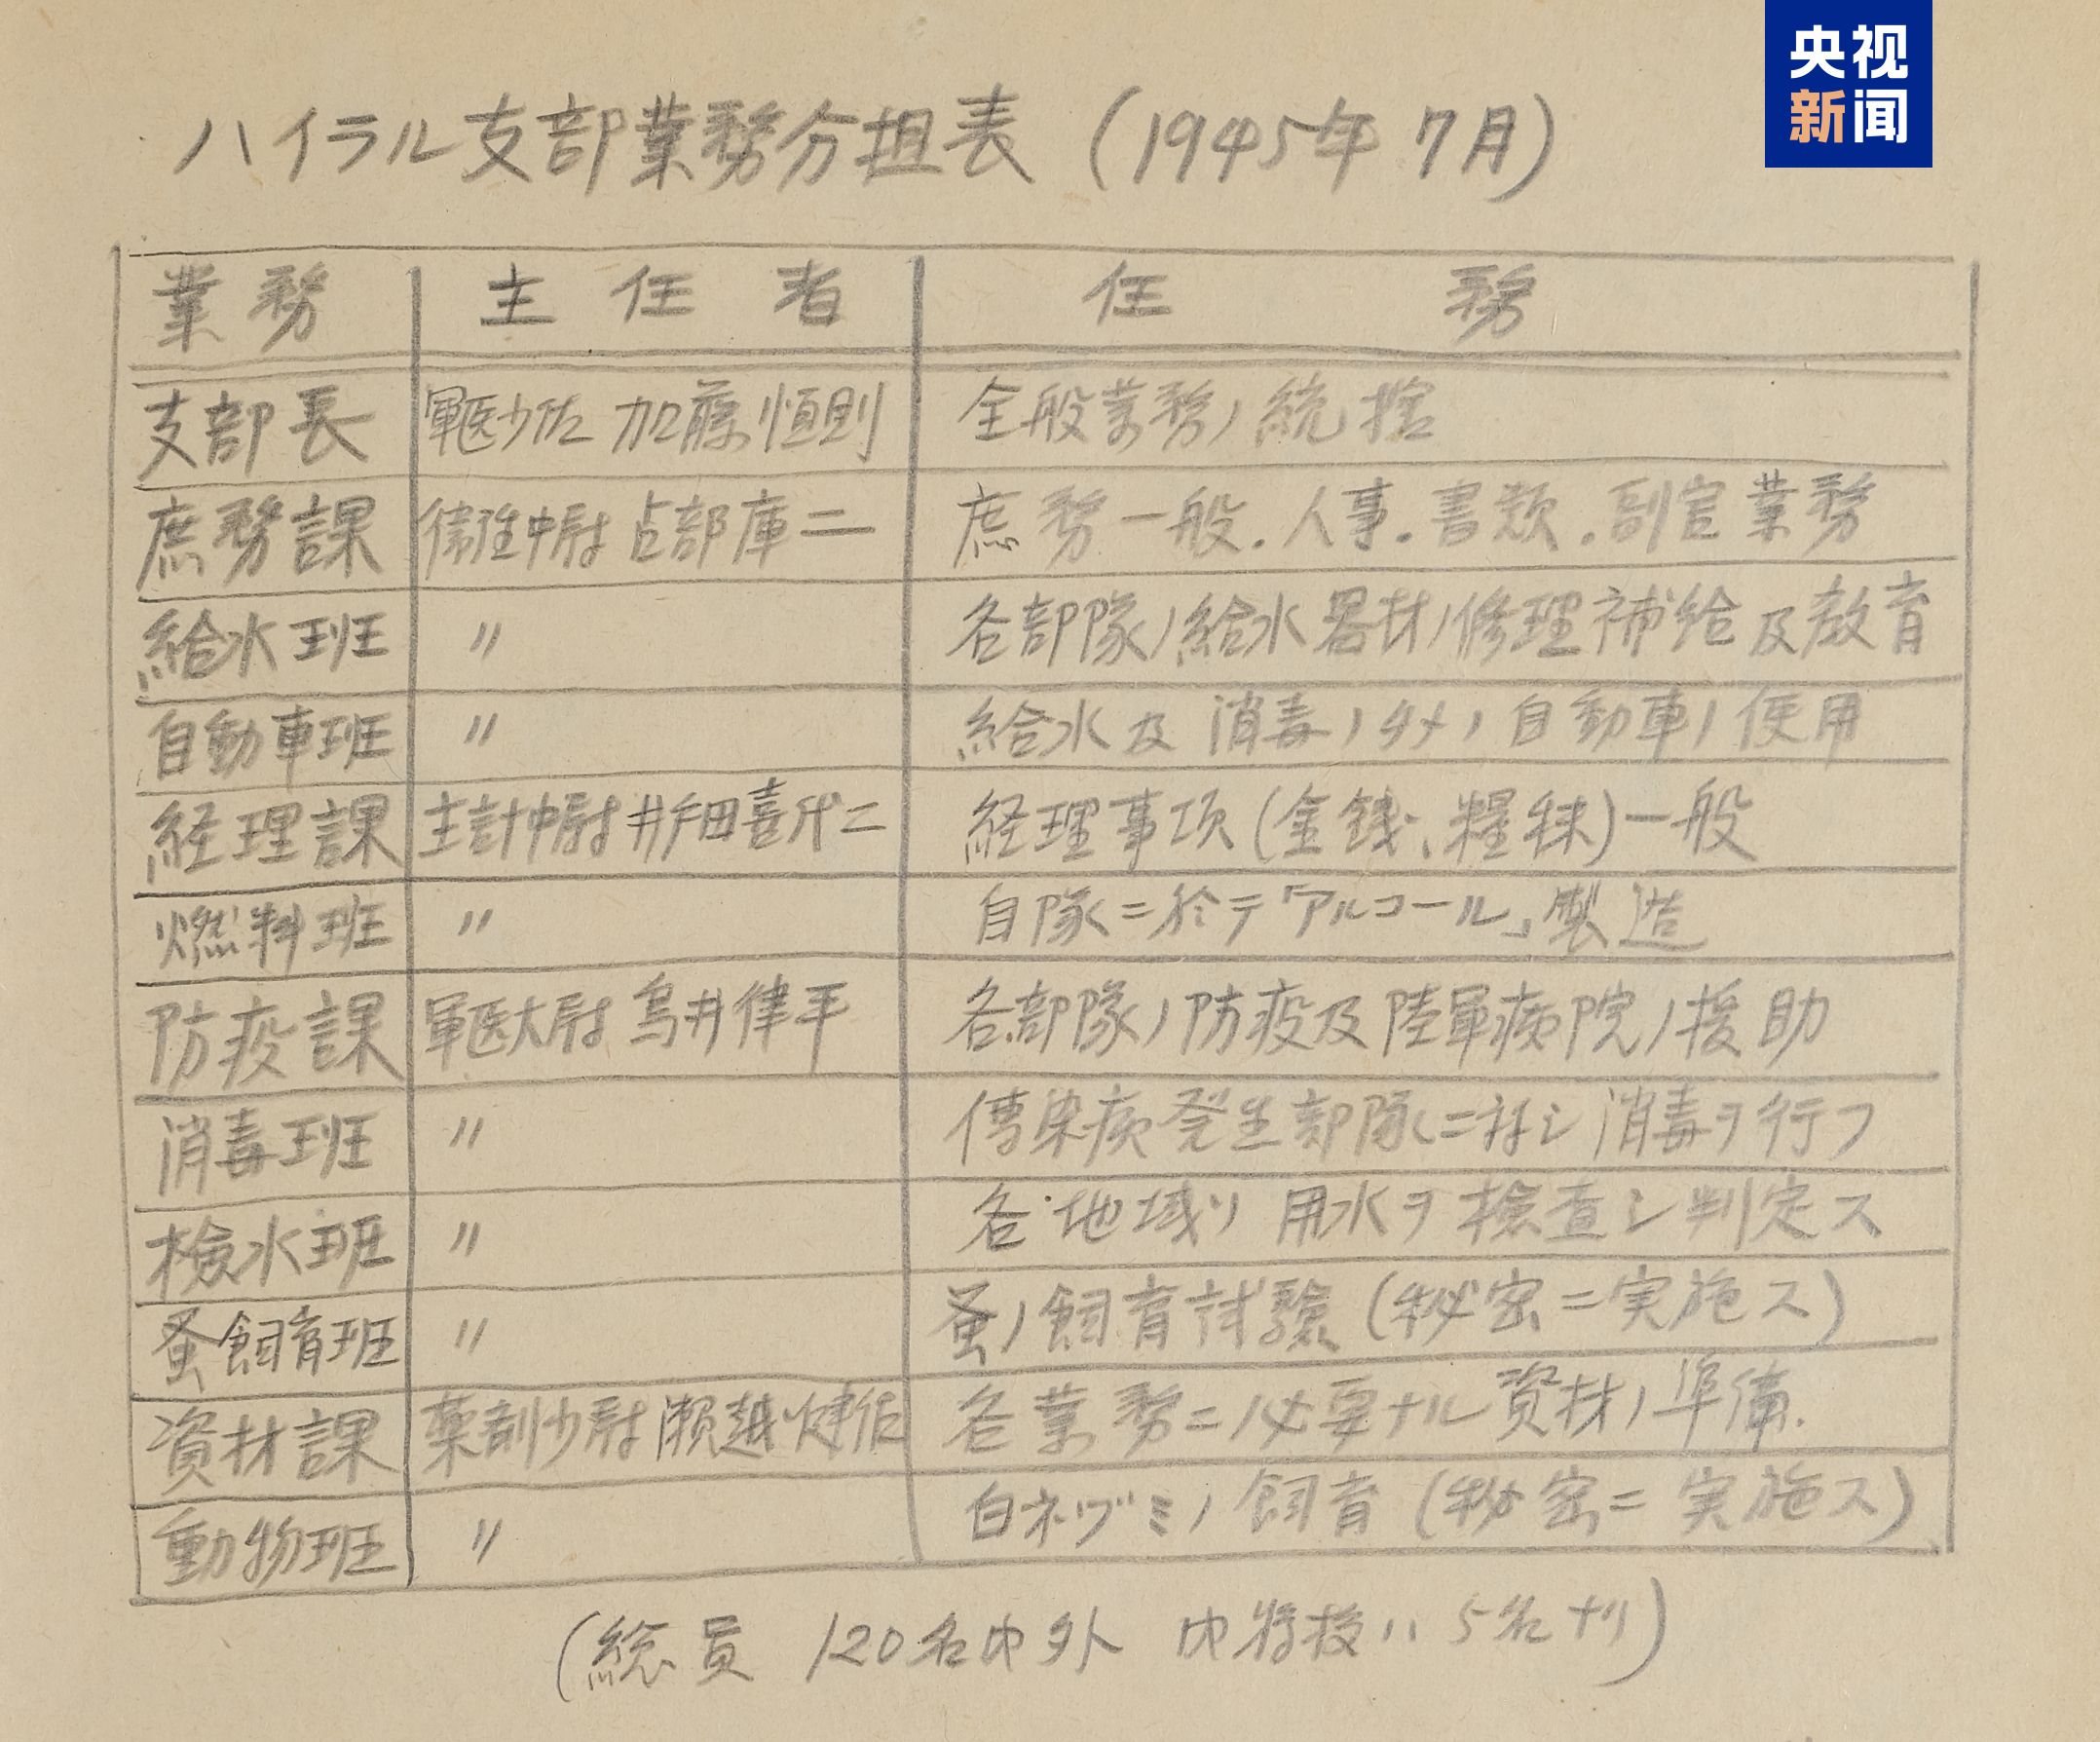 央视
新闻
ハイラル支部業務分担表（1945年7月）
業務 主任者 任務
支部長 軍医少佐 加藤恒則 全般業務ノ統括
庶務課 衛准中尉 占部庫二 庶務一般．人事．書類．副官業務
給水班 〃 各部隊ノ給水器材ノ修理補給及教育
自動車班 〃 給水及消毒ノタメノ自動車ノ使用
経理課 主計中尉 井戸田喜代二 経理事項（金銭、糧秣）一般
燃料班 〃 自隊ニ於テ「アルコール」製造
防疫課 軍医大尉 鳥井律平 各部隊ノ防疫及陸軍病院ノ援助
消毒班 〃 傳染病発生部隊ニ対シ消毒ヲ行フ
檢水班 〃 各地域ノ用水ヲ檢査シ判定ス
蚤飼育班 〃 蚤ノ飼育試驗（秘密ニ実施ス）
資材課 薬剤少尉 瀬越健 各業務ニ必要ナル資材ノ準備．
動物班 〃 白ネヅミノ飼育（秘密ニ実施ス）
（総員 120名内外 内将校ハ5名ナリ）